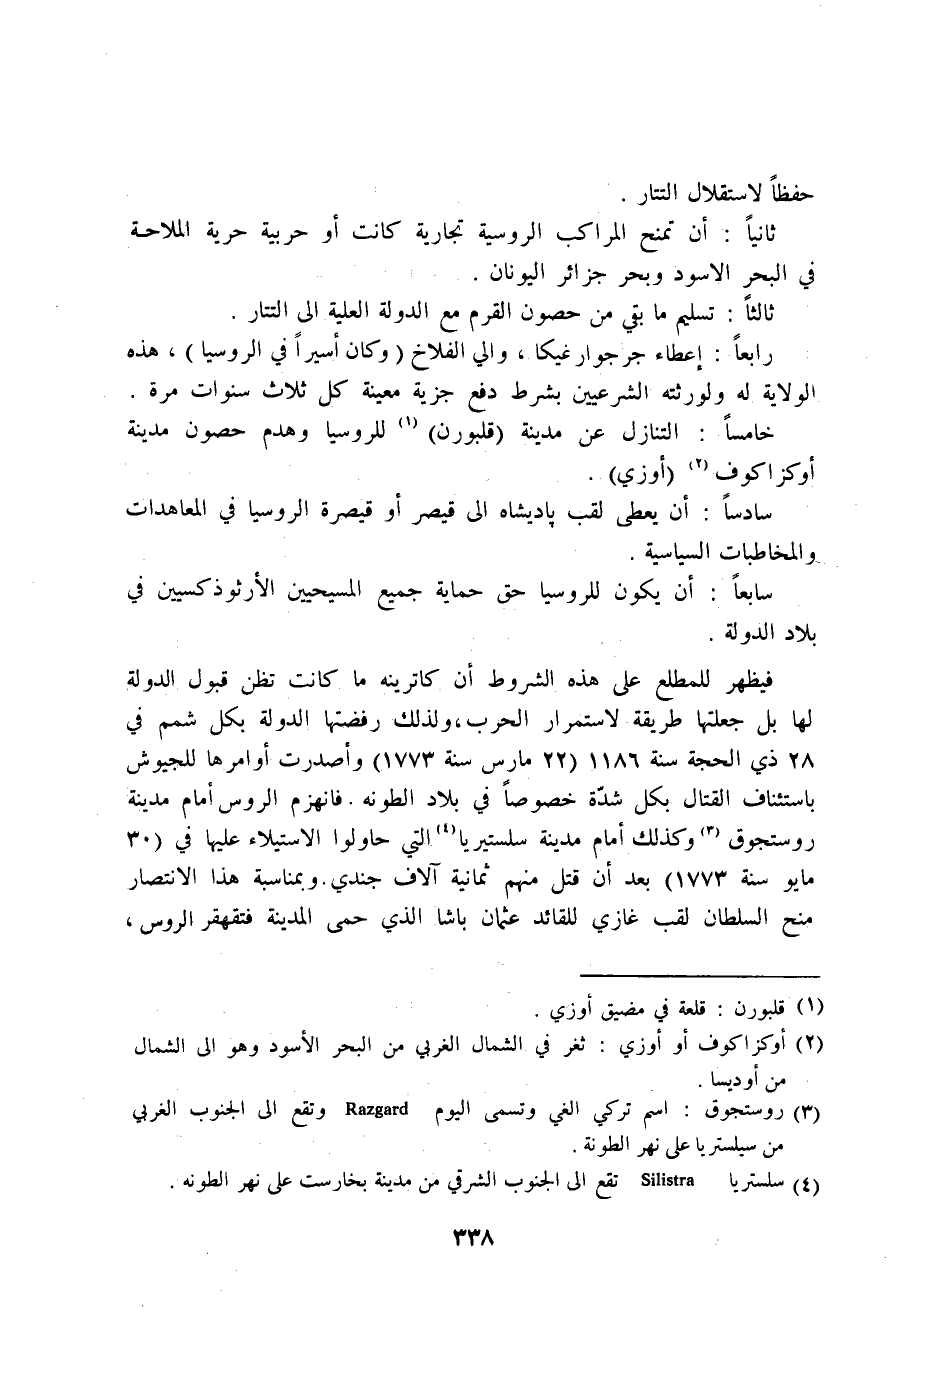 حفظاً لاستقلال التتار .
ثانياً : أن تمنح المراكب الروسية تجارية كانت أو حربية حرية الملاحة
في البحر الاسود وبحر جزائر اليونان .
ثالثاً : تسليم ما بقي من حصون القرم مع الدولة العلية الى التتار .
رابعاً : إعطاء جرجوارغيكا ، والي الفلاخ ( وكان أسيراً في الروسيا ) ، هذه
الولاية له ولورثته الشرعيين بشرط دفع جزية معينة كل ثلاث سنوات مرة .
خامساً : التنازل عن مدينة (قلبورن) (١) للروسيا وهدم حصون مدينة
أوكزاكوف (٢) (أوزي) .
سادساً : أن يعطى لقب پاديشاه الى قيصر أو قيصرة الروسيا في المعاهدات
والمخاطبات السياسية .
سابعاً : أن يكون للروسيا حق حماية جميع المسيحيين الأرثوذكسيين في
بلاد الدولة .
فيظهر للمطلع على هذه الشروط أن كاترينه ما كانت تظن قبول الدولة
لها بل جعلتها طريقة لاستمرار الحرب،ولذلك رفضتها الدولة بكل شمم في
٢٨ ذي الحجة سنة ١١٨٦ (٢٢ مارس سنة ١٧٧٣) وأصدرت أوامرها للجيوش
باستئناف القتال بكل شدّة خصوصاً في بلاد الطونه . فانهزم الروس أمام مدينة
روستجوق (٣) وكذلك أمام مدينة سلستيريا(٤) التي حاولوا الاستيلاء عليها في (٣٠
مايو سنة ١٧٧٣) بعد أن قتل منهم ثمانية آلاف جندي.وبمناسبة هذا الانتصار
منح السلطان لقب غازي للقائد عثمان باشا الذي حمى المدينة فتقهقر الروس ،
(١) قلبورن : قلعة في مضيق أوزي .
(٢) أوكزاكوف أو أوزي : ثغر في الشمال الغربي من البحر الأسود وهو الى الشمال
من أوديسا .
(٣) روستجوق : اسم تركي الغي وتسمى اليوم Razgard وتقع الى الجنوب الغربي
من سيلستريا على نهر الطونة .
(٤) سلستريا Silistra تقع الى الجنوب الشرقي من مدينة بخارست على نهر الطونه .
٣٣٨